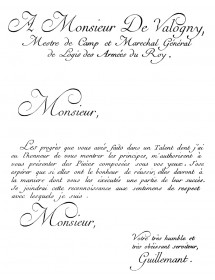 A Monsieur De Valogny,
Mestre de Camp et Marechal Général
de Logis des Armées du Roy.
Monsieur,
Les progrès que vous avés faits dans un Talent dont j'ai
eu l'honneur de vous montrer les principes, m'autorisent à
vous présenter des Pièces composées sous vos yeux. J'ose
espérer que si elles ont le bonheur de réussir, elles devront à
la manière dont vous les éxécutés une partie de leur succès.
Je joindrai cette reconnoissance aux sentimens de respect
avec lesquels je suis.
Monsieur,
Votre très humble et
très obéissant serviteur,
Guillemant.